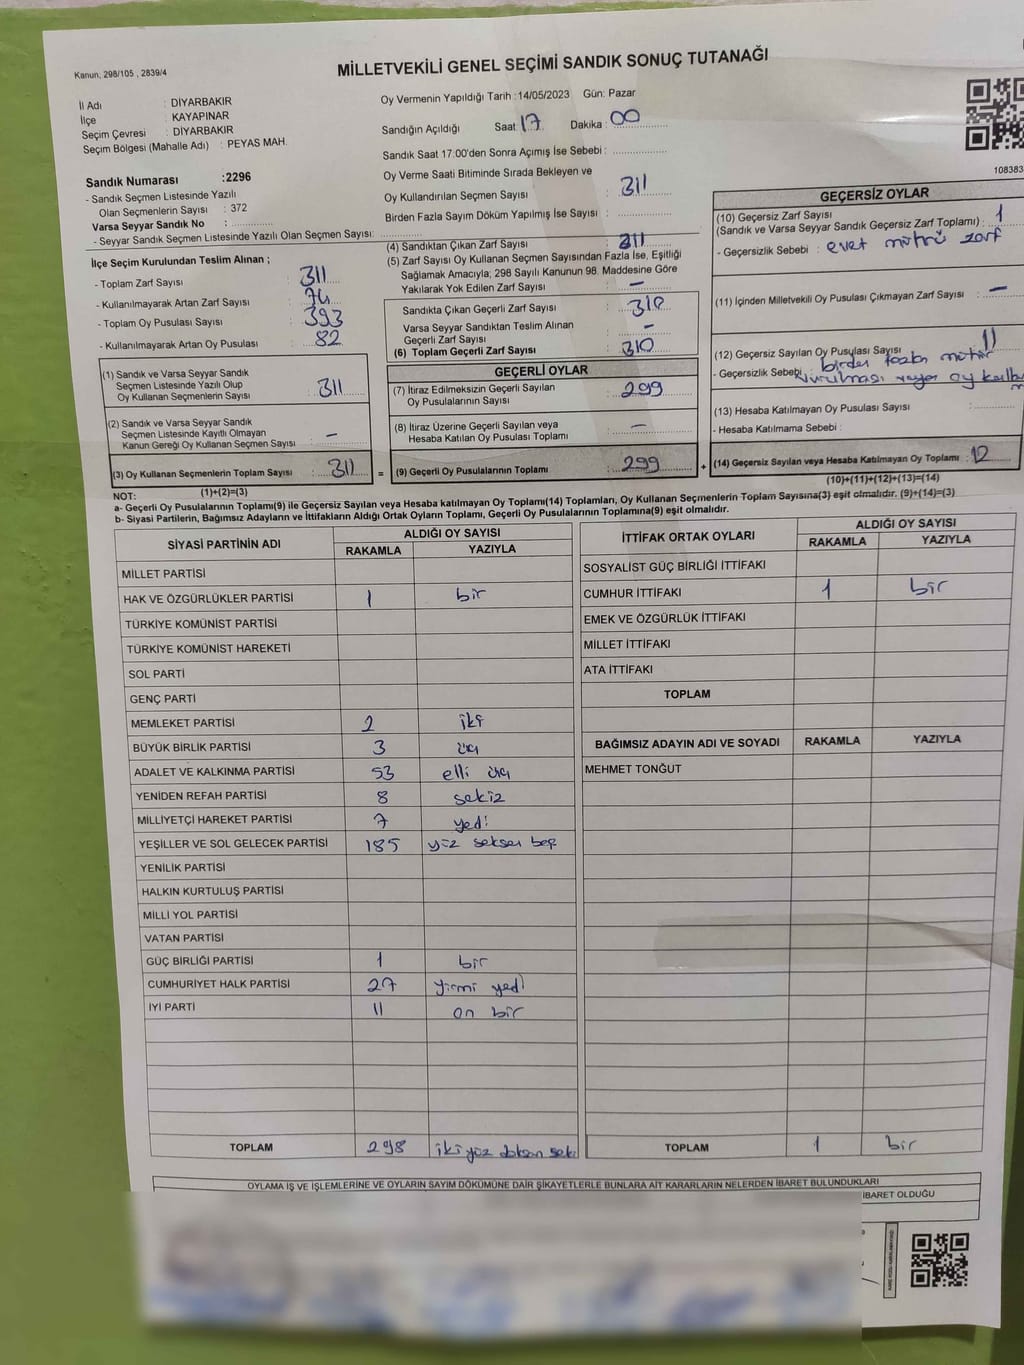 MİLLETVEKİLİ GENEL SEÇİMİ SANDIK SONUÇ TUTANAĞI
Kanun, 298/105 , 2839/4
İl Adı : DİYARBAKIR
İlçe : KAYAPINAR
Seçim Çevresi : DİYARBAKIR
Seçim Bölgesi (Mahalle Adı) : PEYAS MAH.
Sandık Numarası :2296
- Sandık Seçmen Listesinde Yazılı
Olan Seçmenlerin Sayısı : 372
Varsa Seyyar Sandık No :
- Seyyar Sandık Seçmen Listesinde Yazılı Olan Seçmen Sayısı:
Oy Vermenin Yapıldığı Tarih :14/05/2023 Gün: Pazar
Sandığın Açıldığı Saat 17 Dakika : 00
Sandık Saat 17:00'den Sonra Açımış İse Sebebi :
Oy Verme Saati Bitiminde Sırada Bekleyen ve
Oy Kullandırılan Seçmen Sayısı : 311
Birden Fazla Sayım Döküm Yapılmış İse Sayısı :
108383
İlçe Seçim Kurulundan Teslim Alınan ;
- Toplam Zarf Sayısı : 311
- Kullanılmayarak Artan Zarf Sayısı : 74
- Toplam Oy Pusulası Sayısı : 393
- Kullanılmayarak Artan Oy Pusulası : 82
(1) Sandık ve Varsa Seyyar Sandık
Seçmen Listesinde Yazılı Olup
Oy Kullanan Seçmenlerin Sayısı : 311
(2) Sandık ve Varsa Seyyar Sandık
Seçmen Listesinde Kayıtlı Olmayan
Kanun Gereği Oy Kullanan Seçmen Sayısı : -
(3) Oy Kullanan Seçmenlerin Toplam Sayısı : 311 =
(1)+(2)=(3)
(4) Sandıktan Çıkan Zarf Sayısı : 311
(5) Zarf Sayısı Oy Kullanan Seçmen Sayısından Fazla İse, Eşitliği
Sağlamak Amacıyla; 298 Sayılı Kanunun 98. Maddesine Göre
Yakılarak Yok Edilen Zarf Sayısı : -
Sandıkta Çıkan Geçerli Zarf Sayısı : 310
Varsa Seyyar Sandıktan Teslim Alınan
Geçerli Zarf Sayısı : -
(6) Toplam Geçerli Zarf Sayısı : 310
GEÇERLİ OYLAR
(7) İtiraz Edilmeksizin Geçerli Sayılan
Oy Pusulalarının Sayısı : 299
(8) İtiraz Üzerine Geçerli Sayılan veya
Hesaba Katılan Oy Pusulası Toplamı : -
(9) Geçerli Oy Pusulalarının Toplamı : 299 +
GEÇERSİZ OYLAR
(10) Geçersiz Zarf Sayısı
(Sandık ve Varsa Seyyar Sandık Geçersiz Zarf Toplamı) : 1
- Geçersizlik Sebebi : evet mührü zarf
(11) İçinden Milletvekili Oy Pusulası Çıkmayan Zarf Sayısı : -
(12) Geçersiz Sayılan Oy Pusulası Sayısı : 11
- Geçersizlik Sebebi : birden fazla mühür
vurulması veya oy
(13) Hesaba Katılmayan Oy Pusulası Sayısı :
- Hesaba Katılmama Sebebi :
(14) Geçersiz Sayılan veya Hesaba Katılmayan Oy Toplamı : 12
(10)+(11)+(12)+(13)=(14)
NOT:
a- Geçerli Oy Pusulalarının Toplamı(9) ile Geçersiz Sayılan veya Hesaba katılmayan Oy Toplamı(14) Toplamları, Oy Kullanan Seçmenlerin Toplam Sayısına(3) eşit olmalıdır. (9)+(14)=(3)
b- Siyasi Partilerin, Bağımsız Adayların ve İttifakların Aldığı Ortak Oyların Toplamı, Geçerli Oy Pusulalarının Toplamına(9) eşit olmalıdır.
SİYASİ PARTİNİN ADI ALDIĞI OY SAYISI
RAKAMLA YAZIYLA
MİLLET PARTİSİ
HAK VE ÖZGÜRLÜKLER PARTİSİ 1 bir
TÜRKİYE KOMÜNİST PARTİSİ
TÜRKİYE KOMÜNİST HAREKETİ
SOL PARTİ
GENÇ PARTİ
MEMLEKET PARTİSİ 2 iki
BÜYÜK BİRLİK PARTİSİ 3 üç
ADALET VE KALKINMA PARTİSİ 53 elli üç
YENİDEN REFAH PARTİSİ 8 sekiz
MİLLİYETÇİ HAREKET PARTİSİ 7 yedi
YEŞİLLER VE SOL GELECEK PARTİSİ 185 yüz seksen beş
YENİLİK PARTİSİ
HALKIN KURTULUŞ PARTİSİ
MİLLİ YOL PARTİSİ
VATAN PARTİSİ
GÜÇ BİRLİĞİ PARTİSİ 1 bir
CUMHURİYET HALK PARTİSİ 27 yirmi yedi
İYİ PARTİ 11 on bir
TOPLAM 298 iki yüz doksan seki
İTTİFAK ORTAK OYLARI ALDIĞI OY SAYISI
RAKAMLA YAZIYLA
SOSYALİST GÜÇ BİRLİĞİ İTTİFAKI
CUMHUR İTTİFAKI 1 bir
EMEK VE ÖZGÜRLÜK İTTİFAKI
MİLLET İTTİFAKI
ATA İTTİFAKI
TOPLAM
BAĞIMSIZ ADAYIN ADI VE SOYADI RAKAMLA YAZIYLA
MEHMET TONĞUT
TOPLAM 1 bir
OYLAMA İŞ VE İŞLEMLERİNE VE OYLARIN SAYIM DÖKÜMÜNE DAİR ŞİKAYETLERLE BUNLARA AİT KARARLARIN NELERDEN İBARET BULUNDUKLARI
İBARET OLDUĞU